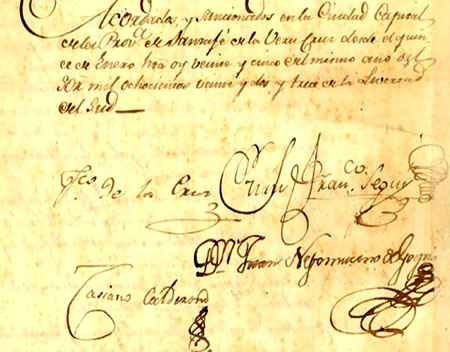 Acordados, y sancionados en la Ciudad Capital
de la Prov.ª de Santafé de la Vera Cruz desde el quin
ce de Enero hta oy veinte y cinco del mismo año del
Sor mil ochocientos veinte y dos y trece de la Livertad
del Sud
Fco. de la Cruz Juan Franco. Seguí
Juan Nepomuceno de Goyno
Casiano Calderond